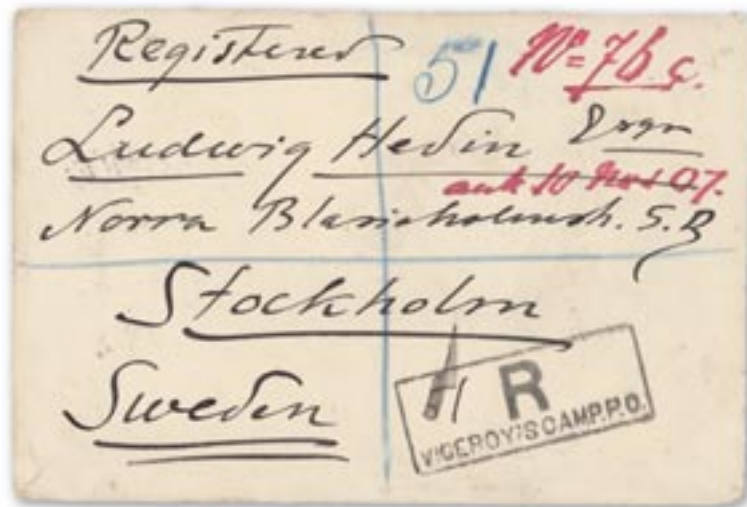 Registered
51 No 76 C.
Ludwig Hedin Esqr
ank 10 Nov 07.
Norra Blasieholmsh. 5.B
Stockholm
Sweden
51 R
VICEROY'S CAMP.P.O.